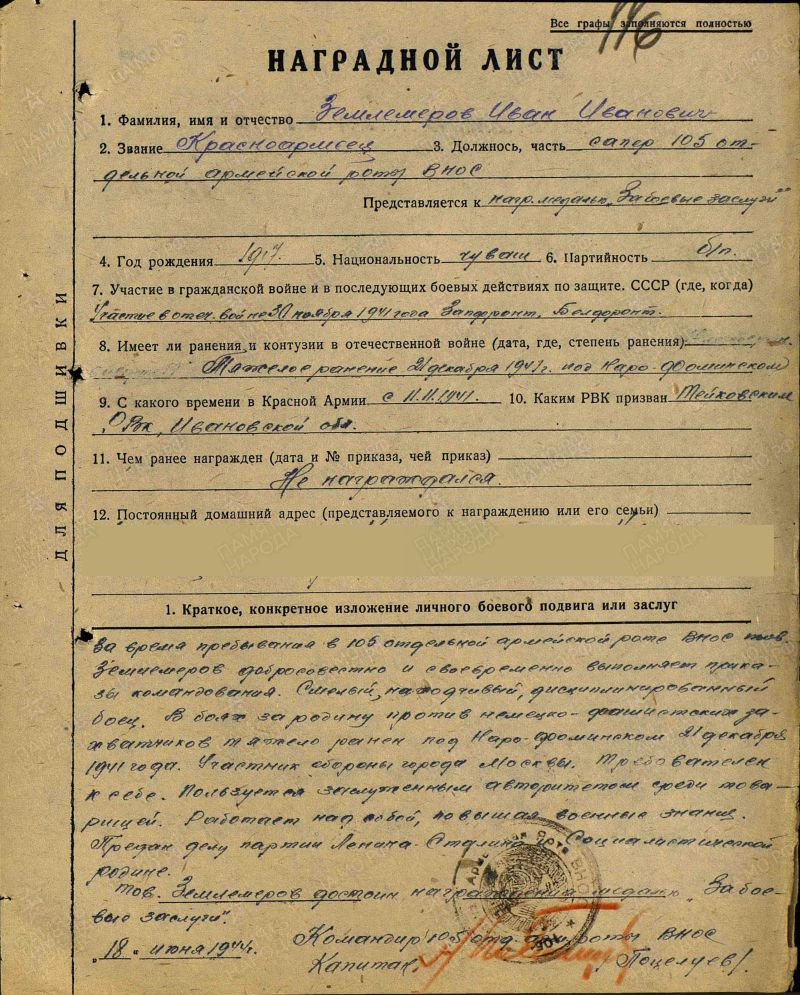 Все графы заполняются полностью
116
НАГРАДНОЙ ЛИСТ
1. Фамилия, имя и отчество Землемеров Иван Иванович
2. Звание Красноармеец 3. Должнось, часть сапер 105 от-
дельной армейской роты ВНОС
Представляется к нагр. медалью "За боевые заслуги"
4. Год рождения 1917. 5. Национальность чуваш 6. Партийность б/п.
7. Участие в гражданской войне и в последующих боевых действиях по защите. СССР (где, когда)
Участие в отеч. войне 30 ноября 1941 года Запфронт. Белфронт.
8. Имеет ли ранения и контузии в отечественной войне (дата, где, степень ранения)
Тяжелое ранение 21 декабря 1941 г. под Наро-Фоминском
9. С какого времени в Красной Армии с 11.11.1941. 10. Каким РВК призван Тейковским
РВК, Ивановской обл.
11. Чем ранее награжден (дата и № приказа, чей приказ)
Не награждался.
12. Постоянный домашний адрес (представляемого к награждению или его семьи)
ДЛЯ ПОДШИВКИ
1. Краткое, конкретное изложение личного боевого подвига или заслуг
За время пребывания в 105 отдельной армейской роте ВНОС тов.
Землемеров добросовестно и своевременно выполняет прика-
зы командования. Смелый, находчивый, дисциплинированный
боец. В боях за родину против немецко-фашистских за-
хватчиков тяжело ранен под Наро-Фоминском 21 декабря
1941 года. Участник обороны города Москвы. Требователен
к себе. Пользуется заслуженным авторитетом среди това-
рищей. Работает над собой, повышая военные знания.
Предан делу партии Ленина-Сталина и Социалистической
родине.
Тов. Землемеров достоин награждения медалью "За бое-
вые заслуги".
"18" июня 1944 г. Командир 105 отд. арм. роты ВНОС
Капитан /Поцелуев/